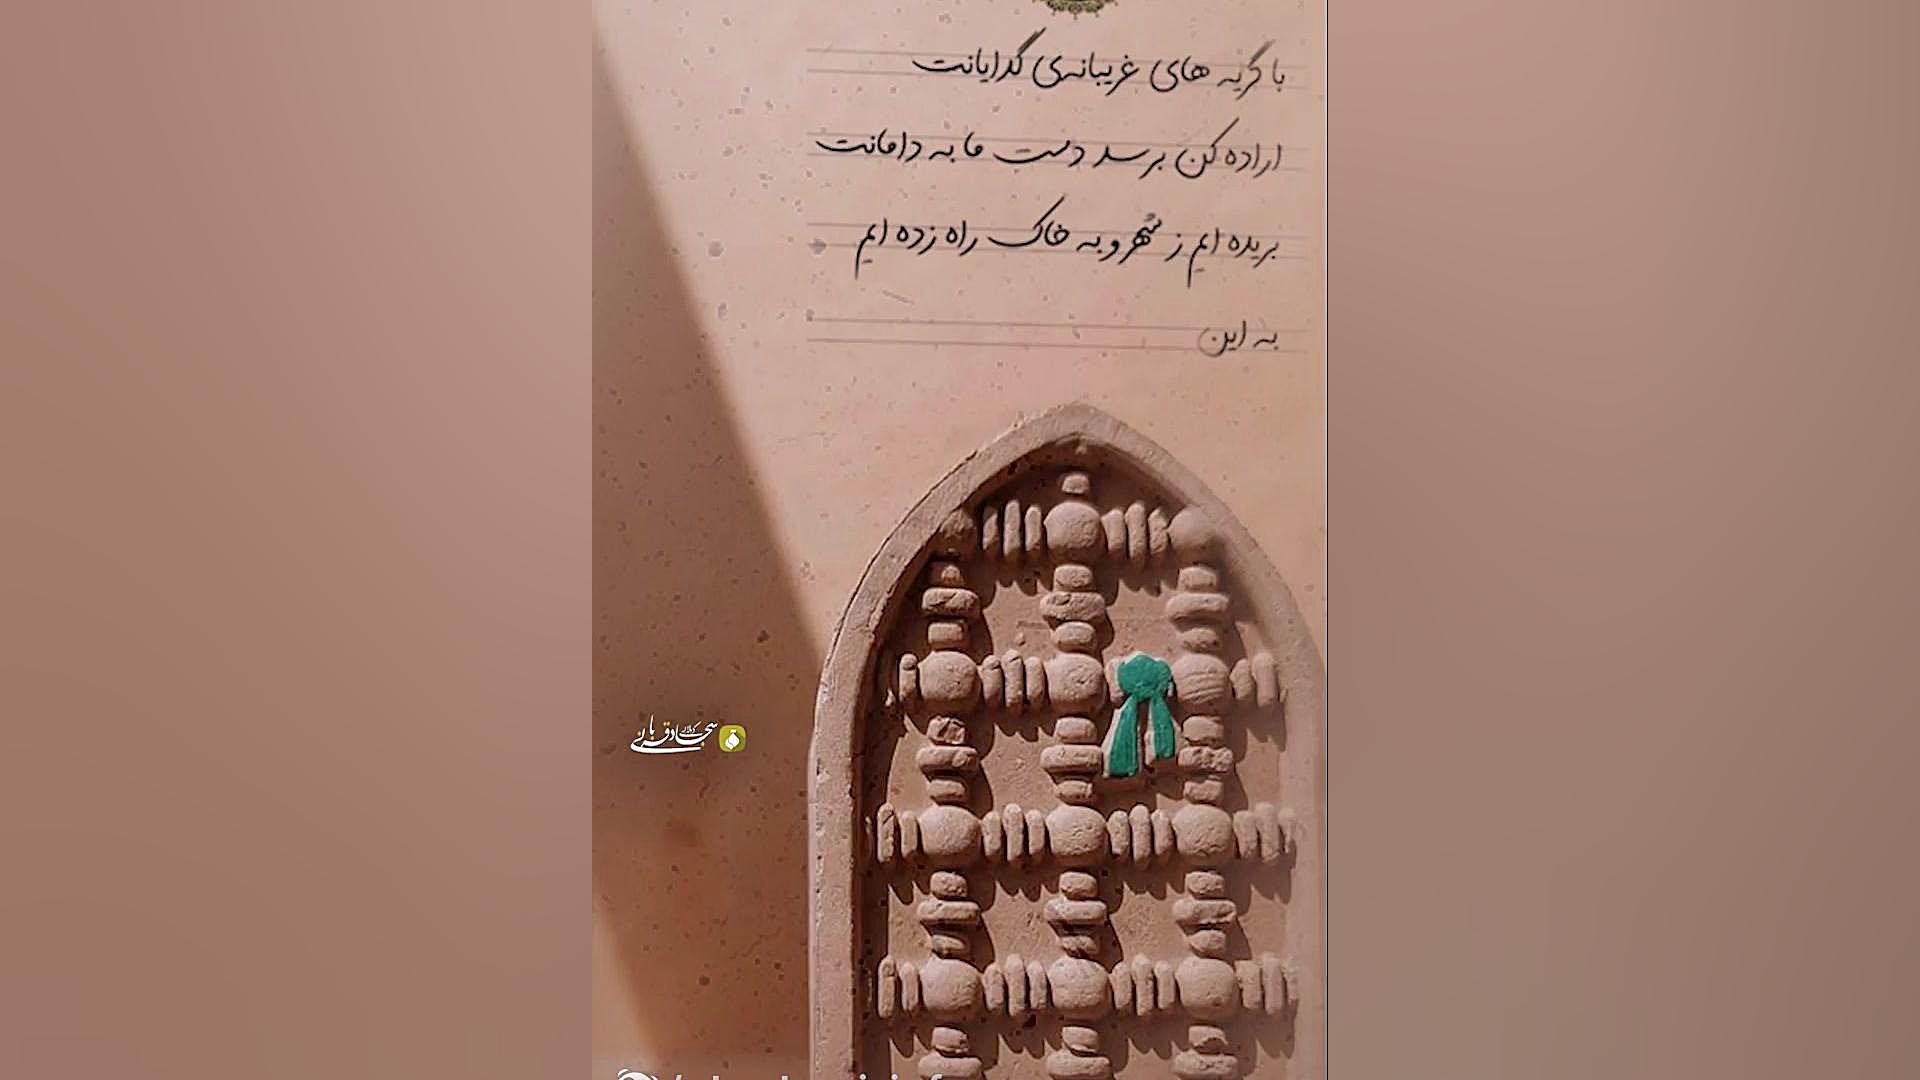 با گریه های غریبانه‌ی گدایانت
اراده کن برسد دست ما به دامانت
بریده ایم ز شهر و به خاک راه زده ایم
به این